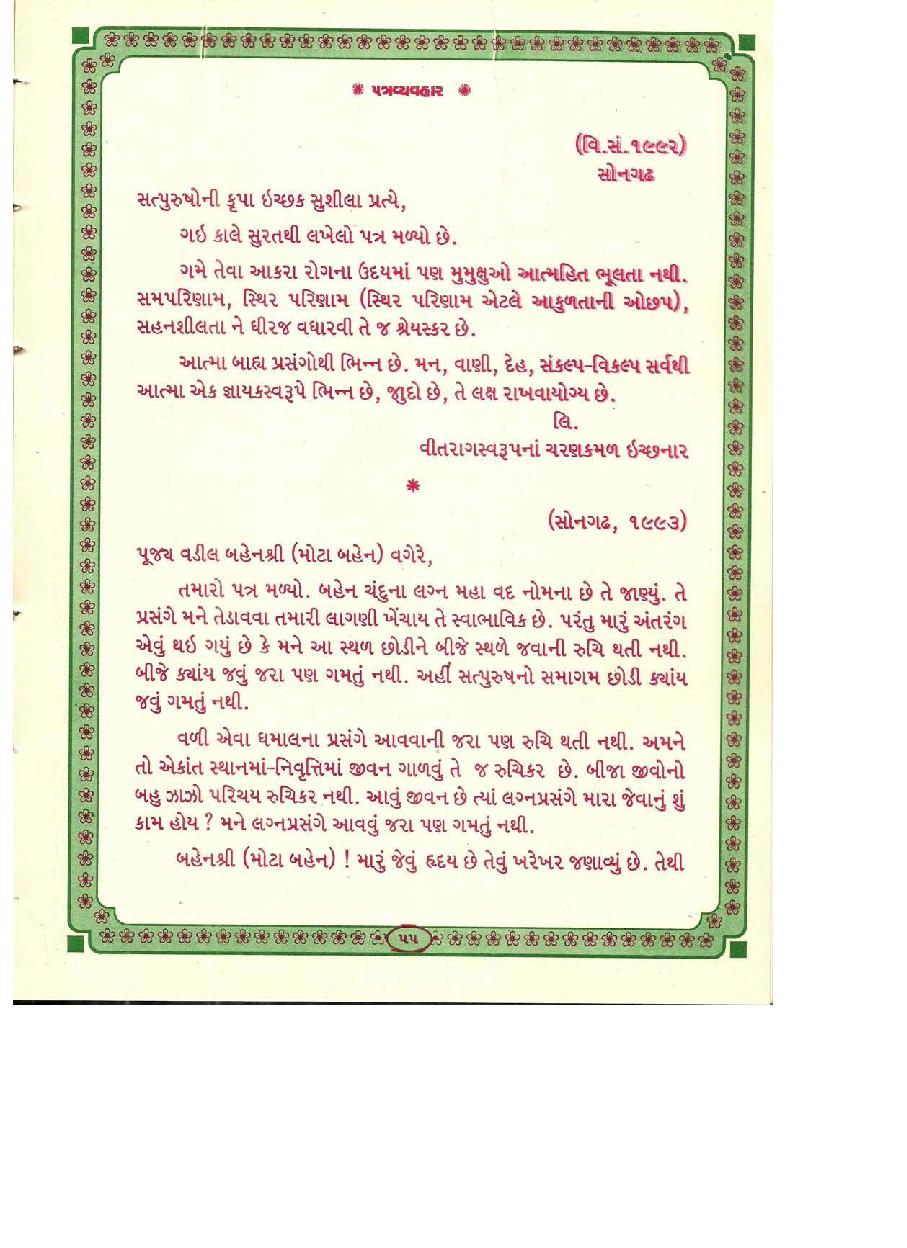 ❋ પત્રવ્યવહાર ❋
(વિ.સં.૧૯૯૨)
સોનગઢ
સત્પુરુષોની કૃપા ઇચ્છક સુશીલા પ્રત્યે,
ગઇ કાલે સુરતથી લખેલો પત્ર મળ્યો છે.
ગમે તેવા આકરા રોગના ઉદયમાં પણ મુમુક્ષુઓ આત્મહિત ભૂલતા નથી.
સમપરિણામ, સ્થિર પરિણામ (સ્થિર પરિણામ એટલે આકુળતાની ઓછપ),
સહનશીલતા ને ધીરજ વધારવી તે જ શ્રેયસ્કર છે.
આત્મા બાહ્ય પ્રસંગોથી ભિન્ન છે. મન, વાણી, દેહ, સંકલ્પ-વિકલ્પ સર્વથી
આત્મા એક જ્ઞાયકસ્વરૂપે ભિન્ન છે, જુદો છે, તે લક્ષ રાખવાયોગ્ય છે.
લિ.
વીતરાગસ્વરૂપનાં ચરણકમળ ઇચ્છનાર
❋
(સોનગઢ, ૧૯૯૩)
પૂજ્ય વડીલ બહેનશ્રી (મોટા બહેન) વગેરે,
તમારો પત્ર મળ્યો. બહેન ચંદુના લગ્ન મહા વદ નોમના છે તે જાણ્યું. તે
પ્રસંગે મને તેડાવવા તમારી લાગણી ખેંચાય તે સ્વાભાવિક છે. પરંતુ મારું અંતરંગ
એવું થઇ ગયું છે કે મને આ સ્થળ છોડીને બીજે સ્થળે જવાની રુચિ થતી નથી.
બીજે ક્યાંય જવું જરા પણ ગમતું નથી. અહીં સત્પુરુષનો સમાગમ છોડી ક્યાંય
જવું ગમતું નથી.
વળી એવા ધમાલના પ્રસંગે આવવાની જરા પણ રુચિ થતી નથી. અમને
તો એકાંત સ્થાનમાં-નિવૃત્તિમાં જીવન ગાળવું તે જ રુચિકર છે. બીજા જીવોનો
બહુ ઝાઝો પરિચય રુચિકર નથી. આવું જીવન છે ત્યાં લગ્નપ્રસંગે મારા જેવાનું શું
કામ હોય ? મને લગ્નપ્રસંગે આવવું જરા પણ ગમતું નથી.
બહેનશ્રી (મોટા બહેન) ! મારું જેવું હૃદય છે તેવું ખરેખર જણાવ્યું છે. તેથી
૫૫